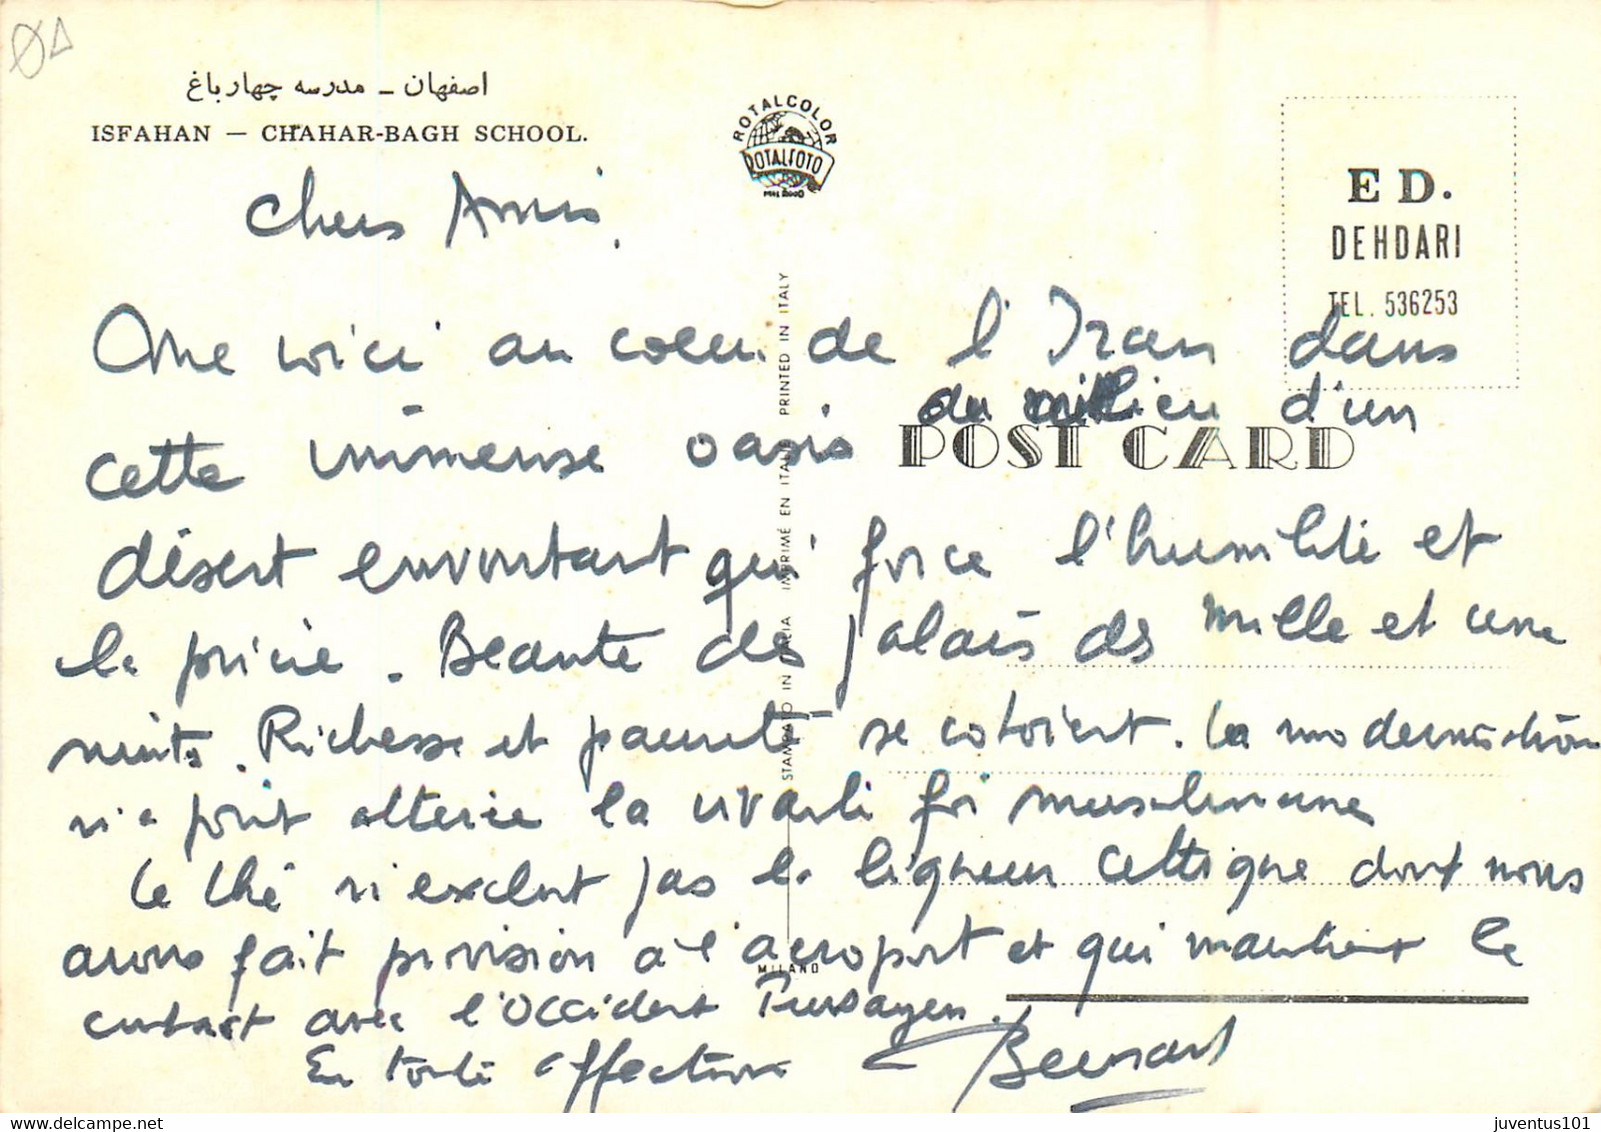 اصفهان - مدرسه چهارباغ
ISFAHAN — CHAHAR-BAGH SCHOOL.
ROTALCOLOR
ROTALFOTO
ED.
DEHDARI
TEL. 536253
POST CARD
STAMPATO IN ITALIA IMPRIMÉ EN ITALIE PRINTED IN ITALY
MILANO
Chers Amis,
Me voici au coeur de l'Iran dans
cette immense oasis au milieu d'un
désert envoutant qui force l'humilité et
la prière. Beauté des palais des Mille et une
nuits. Richesse et pauvreté se cotoient. La modernisation
n'a point altérée la vivante foi musulmane
Le thé n'exclut pas la liqueur Celtique dont nous
avons fait provision à l'aéroport et qui maintient le
contact avec l'Occident
En toute affection Bernard
juventus101